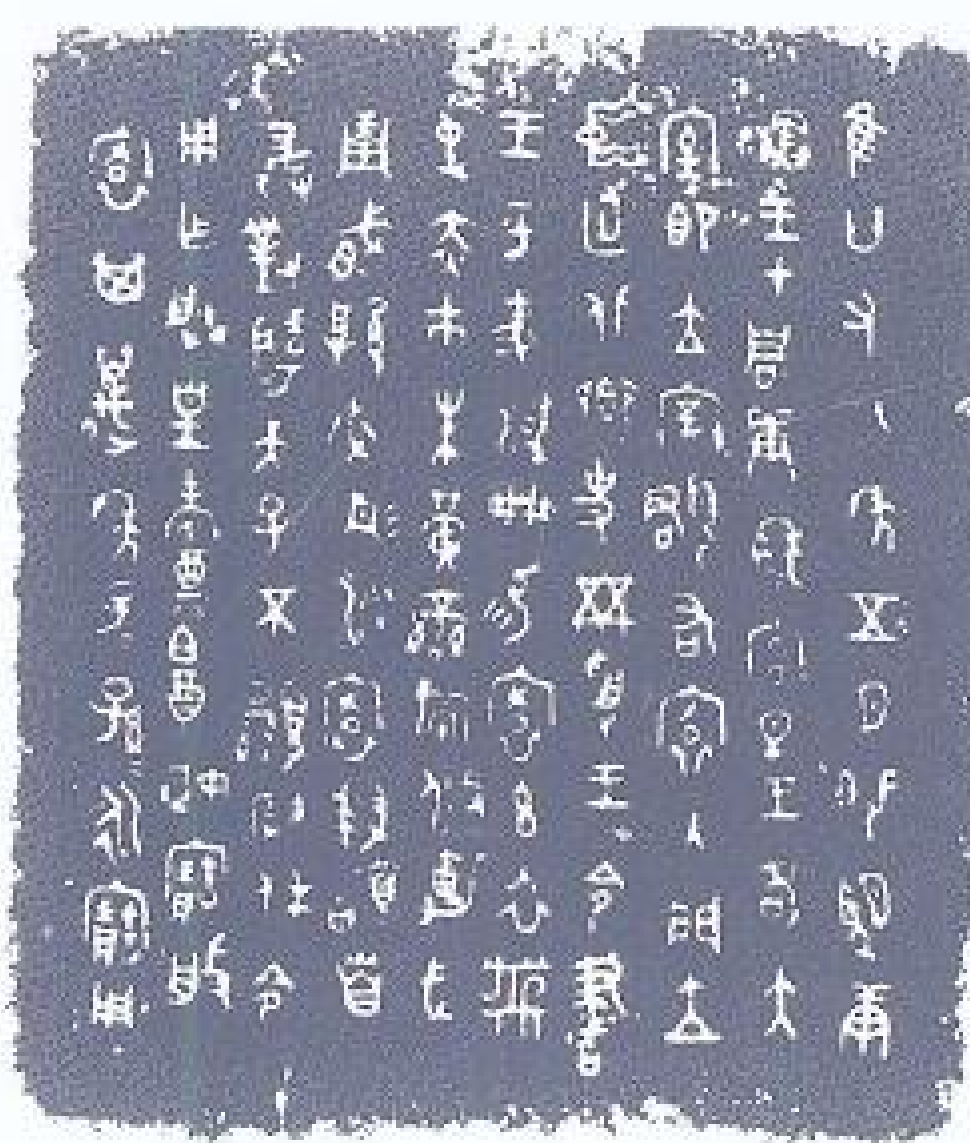 隹廿又八年五月既望庚
寅王才周康穆宮旦王各大
室即立宰頵右寰入門立
中廷北鄉史黹受王令書
王乎史減冊易寰玄衣黹
屯赤巿朱黃鑾旂攸勒戈
琱戟厚必彤沙寰拜稽首
敢對揚天子不顯叚休令
用乍朕皇考奠白奠姬寶盤
寰其萬年子子孫孫永寶用